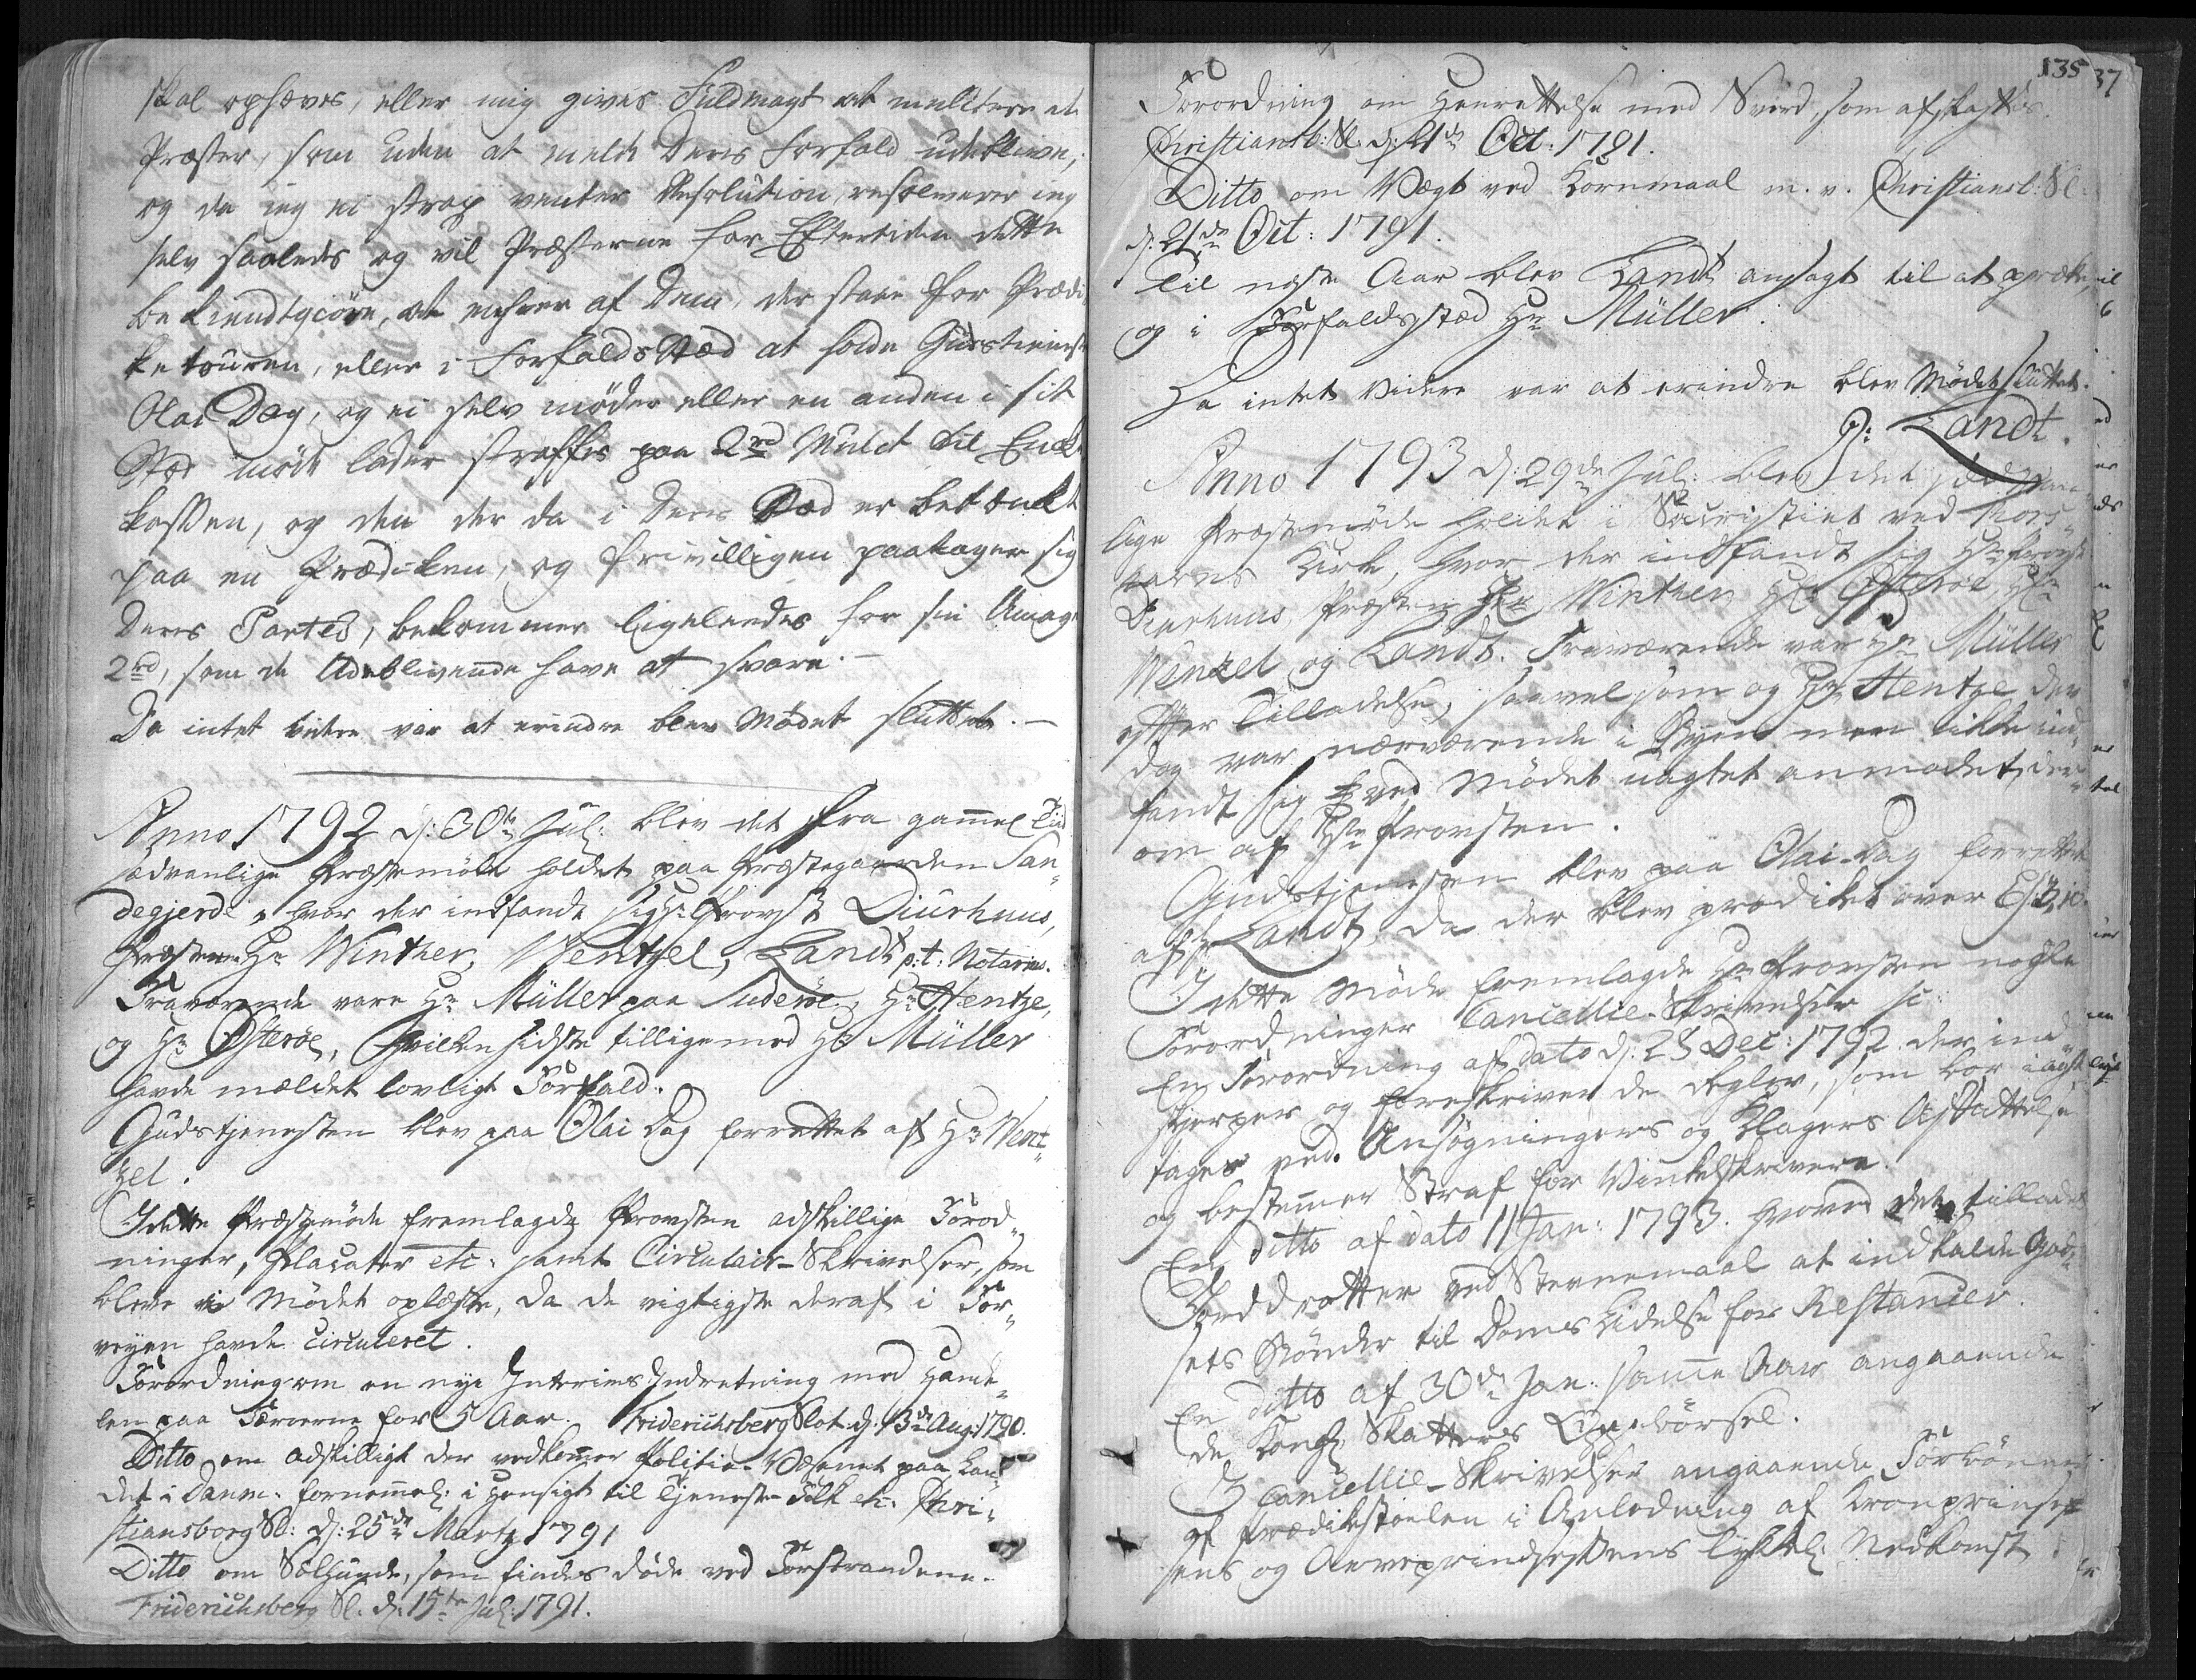 skal ophæves, eller mig gives Fuldmagt at mulktere et
Præster, som uden at melde Deres Forfald udeblive,
og da jeg ei strax venter Resolution, resolverer jeg
selv saaledes og vil Præsterne for Eftertiden dette
bekiendtgiöre, at enhver af Dem, der staar for Prædi
ketouren, eller i Forfalds Stæd at holde Gudstieneste
Olai Dag, og ei selv möder eller en anden i sit
Stæd möde lader straffes paa 2rd Mulct til Enke
kassen, og den der da i Deres Stæd er betænkt
paa en Prædiken, og frivilligen paatager sig
Deres Partes, bekommer ligeledes for sin Umage
2rd, som de Udeblivende have at svare. —
Da intet videre var at erindre blev Mödet sluttet. —
Anno 1792 d: 30te Jul: blev det fra gammel Tid
sædvanlige Præstemöde holdet paa Præstegaarden San„
degjerde, hvor der indfandt sig Hr Provst Diurhuus,
Præsterne Hr Winther, Wentzel, Landt p:t: Notarius.
Fraværende vare Hr Müller paa Suderöe, Hr Hentze,
og Hr Østeröe, hvilken sidste tilligemed Hr Müller
havde mældet lovligt Forfald.
Gudstjenesten blev paa Olai Dag forrettet af Hr Went„
zel.
I dette Præstemöde fremlagde Provsten adskillige Forod„
ninger, Placater etc: samt Circulair-Skrivelser, som
bleve i Mödet oplæste, da de vigtigste deraf i For„
veyen havde circuleret.
Forordning om en nye Interims Indretning med Hand„
len paa Færöerne for 5 Aar. Friderichsberg Slot d: 13de Aug: 1790.
Ditto om adskilligt der vedkommer Politie-Væsenet paa Lan„
det i Danm: fornemmel: i Hensigt til Tjeneste-Folk etc: Chri„
stiansborg Sl: d: 25de Martz 1791
Ditto om Sælhunde, som findes döde ved Forstrandene.
Friderichsberg Sl: d: 15te Jul: 1791.
135
Forordning om Henrettelse med Sverd, som afskaffes.
Christiansb: Sl: d: 21de Oct: 1791.
Ditto om Vægt ved Kornmaal m. v. Christiansb: Sl:
d: 21de Oct: 1791.
Til næste Aar blev Landt ansagt til at præke,
og i Forfaldsstæd Hr Müller.
Da intet videre var at erindre blev Mödet sluttet.
J: Landt.
Anno 1793 d: 29de Jul: blev det sædvan„
lige Præstemöde holdet i Sacristiet ved Thors„
havns Kirke, hvor der indfandt sig Hr Provst
Diurhuus, Præsterne Hr Winther, Hr Østeröe, Hr
Wentzel og Landt. Fraværende var Hr Müller
efter Tilladelse, saavelsom og Hr Hentze, der
dog var nærværende i Byen men ikke ind„
fandt sig ved Mödet uagtet anmodet der„
om af Hr Provsten.
Gudstjenesten blev paa Olai-Dag forrettet
af Landt, da der blev prædiket over Es: 3, 10.
I dette Möde fremlagde Hr Provsten nogle
Forordninger Cancellie-Skrivelser sc:
En Forordning af dato d: 23 Dec: 1792 der ind„
skjerper og foreskriver de Regler, som bör iagt„
tages ved Ansögningers og Klagers Affattelse
og bestemmer Straf for Vinkelskrivere.
En ditto af dato 11 Jan: 1793. hvorved det tillades
Jorddrotter ved Stevnemaal at indkalde God„
sets Bönder til Doms Lidelse for Restancer.
En ditto af 30de Jan: samme Aar angaaende
de Kongl: Skatters Oppebörsel.
3 Cancellie-Skrivelser angaaende Forbönner
af Prædikestoelen i Anledning af Kronprinses„
sens og Arveprindsessens lykkel: Nedkomst.